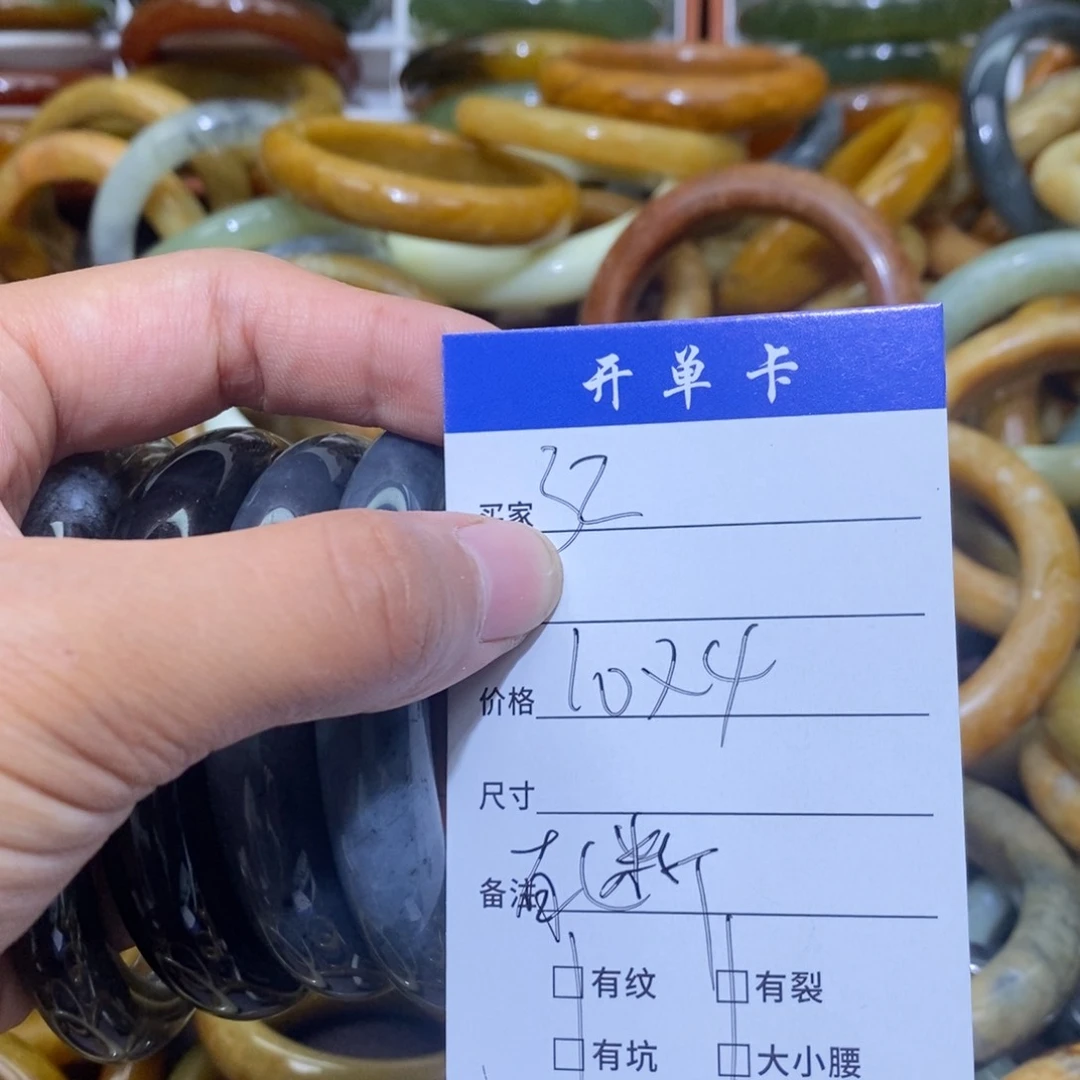 开单卡
买家
价格 10x4
尺寸
备注 有断
□有纹 □有裂
□有坑 □大小腰